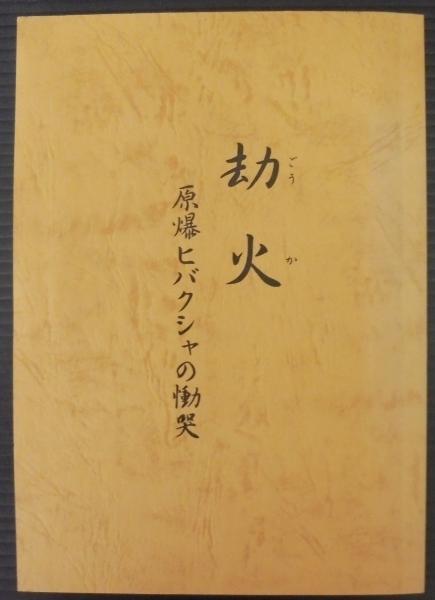 劫火
ごうか
原爆ヒバクシャの慟哭